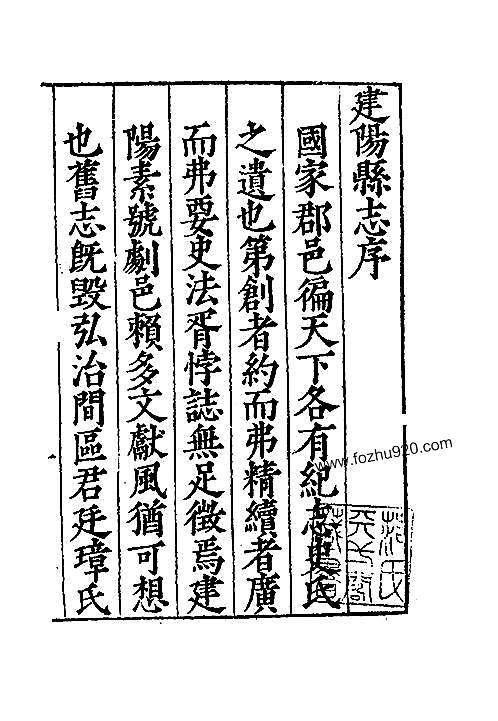 建陽縣志序
國家郡邑徧天下各有紀志史氏
之遺也第創者約而弗精續者廣
而弗要史法胥悖誌無足徵焉建
陽素號劇邑賴多文獻風猶可想
也舊志旣毀弘治間區君廷璋氏
www.fozhu920.com
范氏天一閣藏書